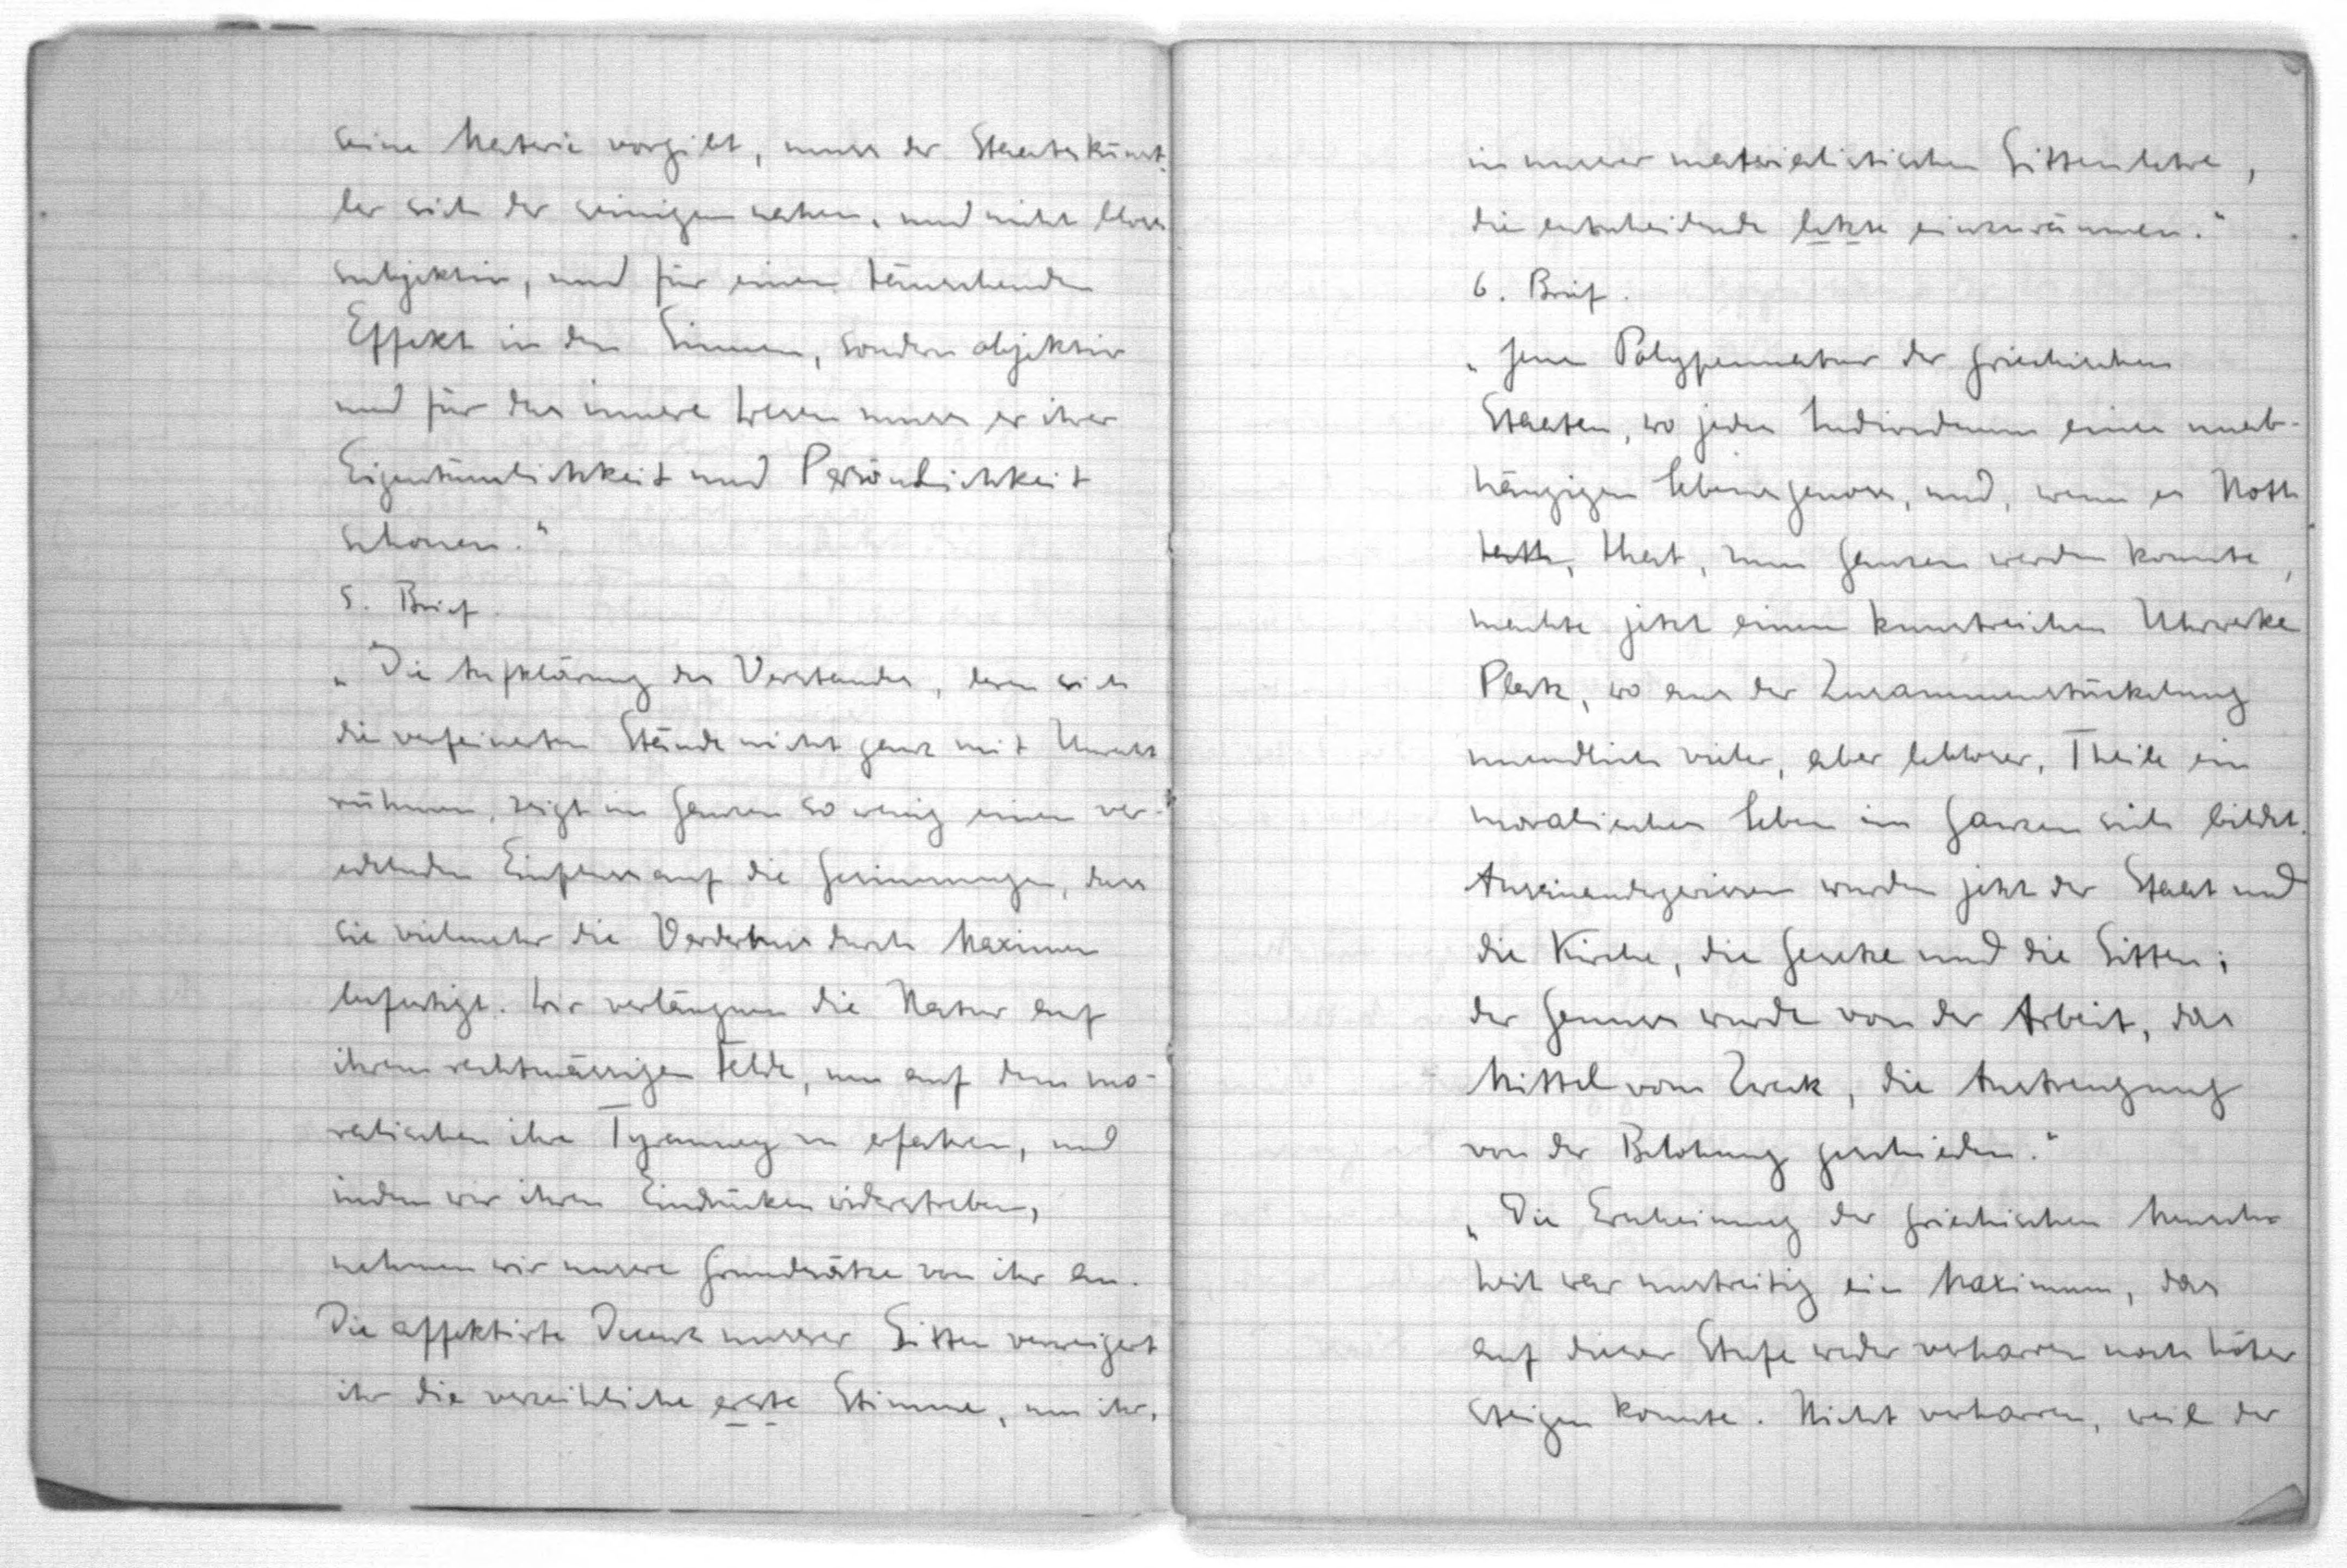 seine Materie vorgibt, muss der Staatskünst-
ler sich der seinigen nahen, und nicht bloss
subjektiv, und für einen täuschenden
Effekt in den Sinnen, sondern objektiv
und für das innere Wesen muss er ihrer
Eigentümlichkeit und Persönlichkeit
schonen."
5. Brief.
„Die Aufklärung des Verstandes, deren sich
die verfeinerten Stände nicht ganz mit Unrecht
rühmen, zeigt im Ganzen so wenig einen ver-
edelnden Einfluss auf die Gesinnungen, dass
sie vielmehr die Verderbnis durch Maximen
befestigt. Wir verläugnen die Natur auf
ihrem rechtmässigen Felde, um auf dem mo-
ralischen ihre Tyranney zu erfahren, und
indem wir ihren Eindrücken widerstreben,
nehmen wir unsere Grundsätze von ihr an.
Die affektirte Decenz unserer Sitten verweigert
ihr die verzeihliche erste Stimme, um ihr,
in unserer materialistischen Sittenlehre,
die entscheidende letzte einzuräumen."
6. Brief.
„Jene Polypennatur der griechischen
Staaten, wo jedes Individuum eines unab-
hängigen Lebens genoss, und, wenn es Noth
that, zum Ganzen werden konnte,
machte jetzt einem kunstreichen Uhrwerke
Platz, wo aus der Zusammenstückelung
unendlich vieler, aber lebloser, Theile ein
moralisches Leben im Ganzen sich bildet.
Auseinandergerissen wurden jetzt der Staat und
die Kirche, die Gesetze und die Sitten;
der Genuss wurde von der Arbeit, das
Mittel vom Zweck, die Anstrengung
von der Belohnung geschieden."
„Die Erscheinung der griechischen Mensch-
heit war unstreitig ein Maximum, das
auf dieser Stufe weder verharren noch höher
steigen konnte. Nicht verharren, weil der